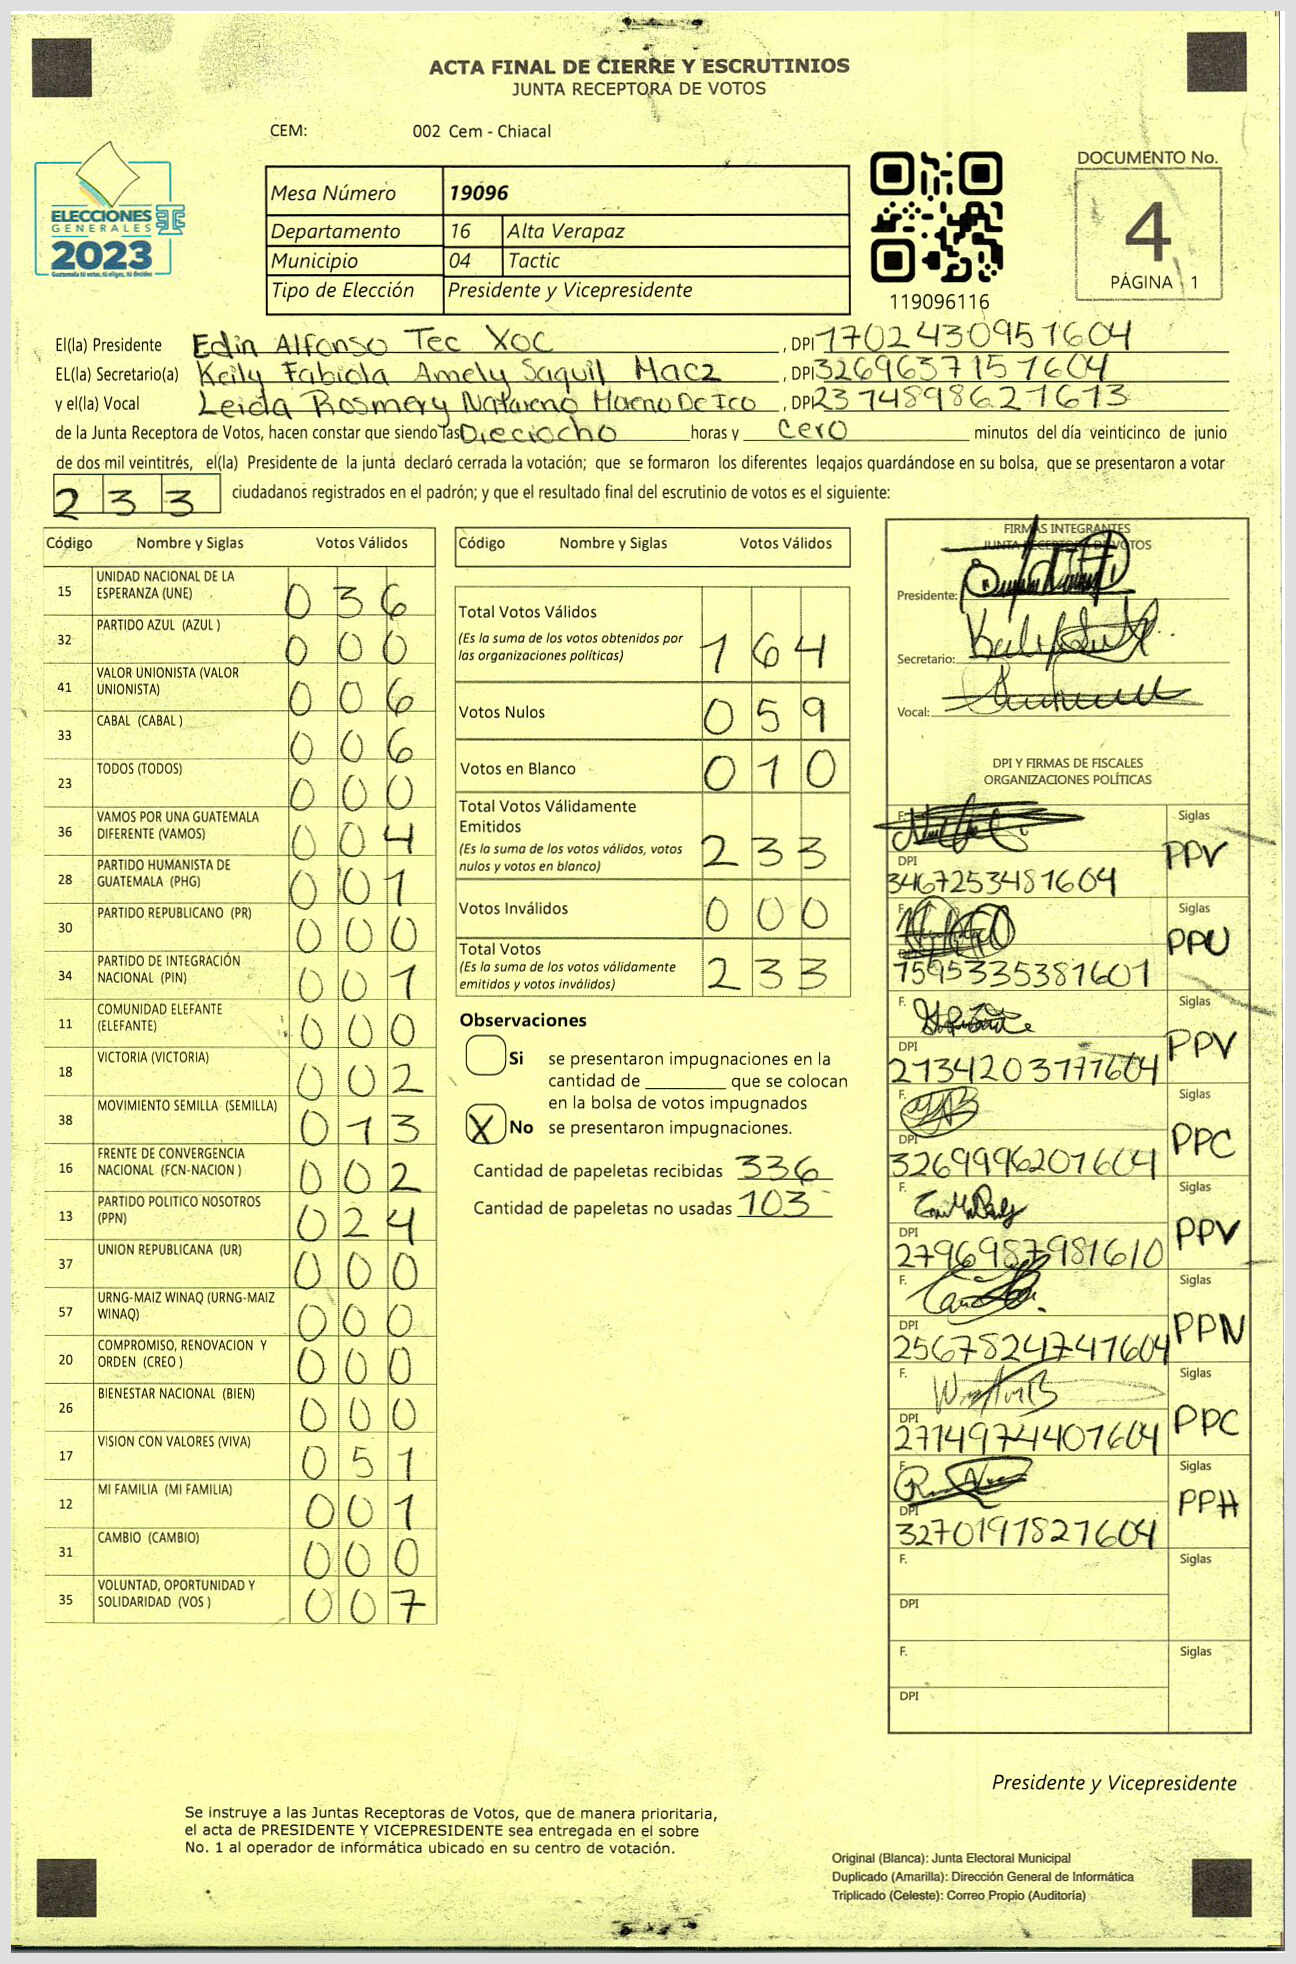 ACTA FINAL DE CIERRE Y ESCRUTINIOS
JUNTA RECEPTORA DE VOTOS
CEM: 002 Cem - Chiacal
ELECCIONES
GENERALES
2023
Guatemala tú votas, tú eliges, tú decides
Mesa Número 19096
Departamento 16 Alta Verapaz
Municipio 04 Tactic
Tipo de Elección Presidente y Vicepresidente
119096116
DOCUMENTO No.
4
PÁGINA 1
El(la) Presidente Edin Alfonso Tec Xoc , DPI 1702430951604
EL(la) Secretario(a) Keily Fabiola Amely Saquil Macz , DPI 3269637151604
y el(la) Vocal Leida Rosmery Natareno Moreno De Ico , DPI 2374898621613
de la Junta Receptora de Votos, hacen constar que siendo las Dieciocho horas y cero minutos del día veinticinco de junio
de dos mil veintitrés, el(la) Presidente de la junta declaró cerrada la votación; que se formaron los diferentes legajos guardándose en su bolsa, que se presentaron a votar
233 ciudadanos registrados en el padrón; y que el resultado final del escrutinio de votos es el siguiente:
Código Nombre y Siglas Votos Válidos
15 UNIDAD NACIONAL DE LA
ESPERANZA (UNE) 036
32 PARTIDO AZUL (AZUL ) 000
41 VALOR UNIONISTA (VALOR
UNIONISTA) 006
33 CABAL (CABAL ) 006
23 TODOS (TODOS) 000
36 VAMOS POR UNA GUATEMALA
DIFERENTE (VAMOS) 004
28 PARTIDO HUMANISTA DE
GUATEMALA (PHG) 001
30 PARTIDO REPUBLICANO (PR) 000
34 PARTIDO DE INTEGRACIÓN
NACIONAL (PIN) 001
11 COMUNIDAD ELEFANTE
(ELEFANTE) 000
18 VICTORIA (VICTORIA) 002
38 MOVIMIENTO SEMILLA (SEMILLA) 013
16 FRENTE DE CONVERGENCIA
NACIONAL (FCN-NACION ) 002
13 PARTIDO POLITICO NOSOTROS
(PPN) 024
37 UNION REPUBLICANA (UR) 000
57 URNG-MAIZ WINAQ (URNG-MAIZ
WINAQ) 000
20 COMPROMISO, RENOVACION Y
ORDEN (CREO ) 000
26 BIENESTAR NACIONAL (BIEN) 000
17 VISION CON VALORES (VIVA) 051
12 MI FAMILIA (MI FAMILIA) 001
31 CAMBIO (CAMBIO) 000
35 VOLUNTAD, OPORTUNIDAD Y
SOLIDARIDAD (VOS ) 007
Código Nombre y Siglas Votos Válidos
Total Votos Válidos
(Es la suma de los votos obtenidos por
las organizaciones políticas) 164
Votos Nulos 059
Votos en Blanco 010
Total Votos Válidamente
Emitidos
(Es la suma de los votos válidos, votos
nulos y votos en blanco) 233
Votos Inválidos 000
Total Votos
(Es la suma de los votos válidamente
emitidos y votos inválidos) 233
Observaciones
Si se presentaron impugnaciones en la
cantidad de ________ que se colocan
en la bolsa de votos impugnados
X No se presentaron impugnaciones.
Cantidad de papeletas recibidas 336
Cantidad de papeletas no usadas 103
FIRMAS INTEGRANTES
JUNTA RECEPTORA DE VOTOS
Presidente:
Secretario:
Vocal:
DPI Y FIRMAS DE FISCALES
ORGANIZACIONES POLÍTICAS
F. Siglas
DPI PPV
3467253481604
F. Siglas
DPI PPU
1595335381601
F. Siglas
DPI PPV
2134203171604
F. Siglas
DPI PPC
3269996201604
F. Siglas
DPI PPV
2796987981610
F. Siglas
DPI PPN
2567824741604
F. Siglas
DPI PPC
2714974401604
F. Siglas
DPI PPH
3270197821604
F. Siglas
DPI
F. Siglas
DPI
Presidente y Vicepresidente
Se instruye a las Juntas Receptoras de Votos, que de manera prioritaria,
el acta de PRESIDENTE Y VICEPRESIDENTE sea entregada en el sobre
No. 1 al operador de informática ubicado en su centro de votación.
Original (Blanca): Junta Electoral Municipal
Duplicado (Amarilla): Dirección General de Informática
Triplicado (Celeste): Correo Propio (Auditoría)